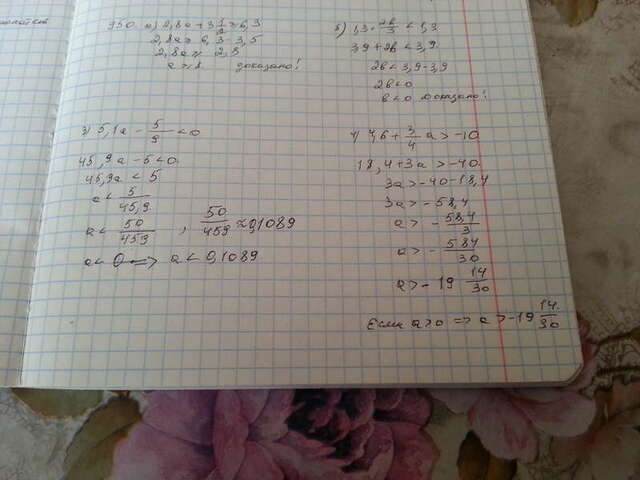 950 а) 2,8a + 3 1/2 > 6,3
2,8a > 6,3 - 3,5
2,8a > 2,8
a > 1 доказано!
б) 1,3 + 2b/3 < 1,3
3,9 + 2b < 3,9
2b < 3,9 - 3,9
2b < 0
b < 0 доказано!
3) 5,1a - 5/9 < 0
45,9a - 5 < 0
45,9a < 5
a < 5/45,9
a < 50/459 , 50/459 ≈ 0,1089
a < 0 => a < 0,1089
+ 3/4 a > -10
18,4 + 3a > -40
3a > -40 - 18,4
3a > -58,4
a > - 58,4/3
a > - 584/30
a > - 19 14/30
Если a > 0 => a > -19 14/30